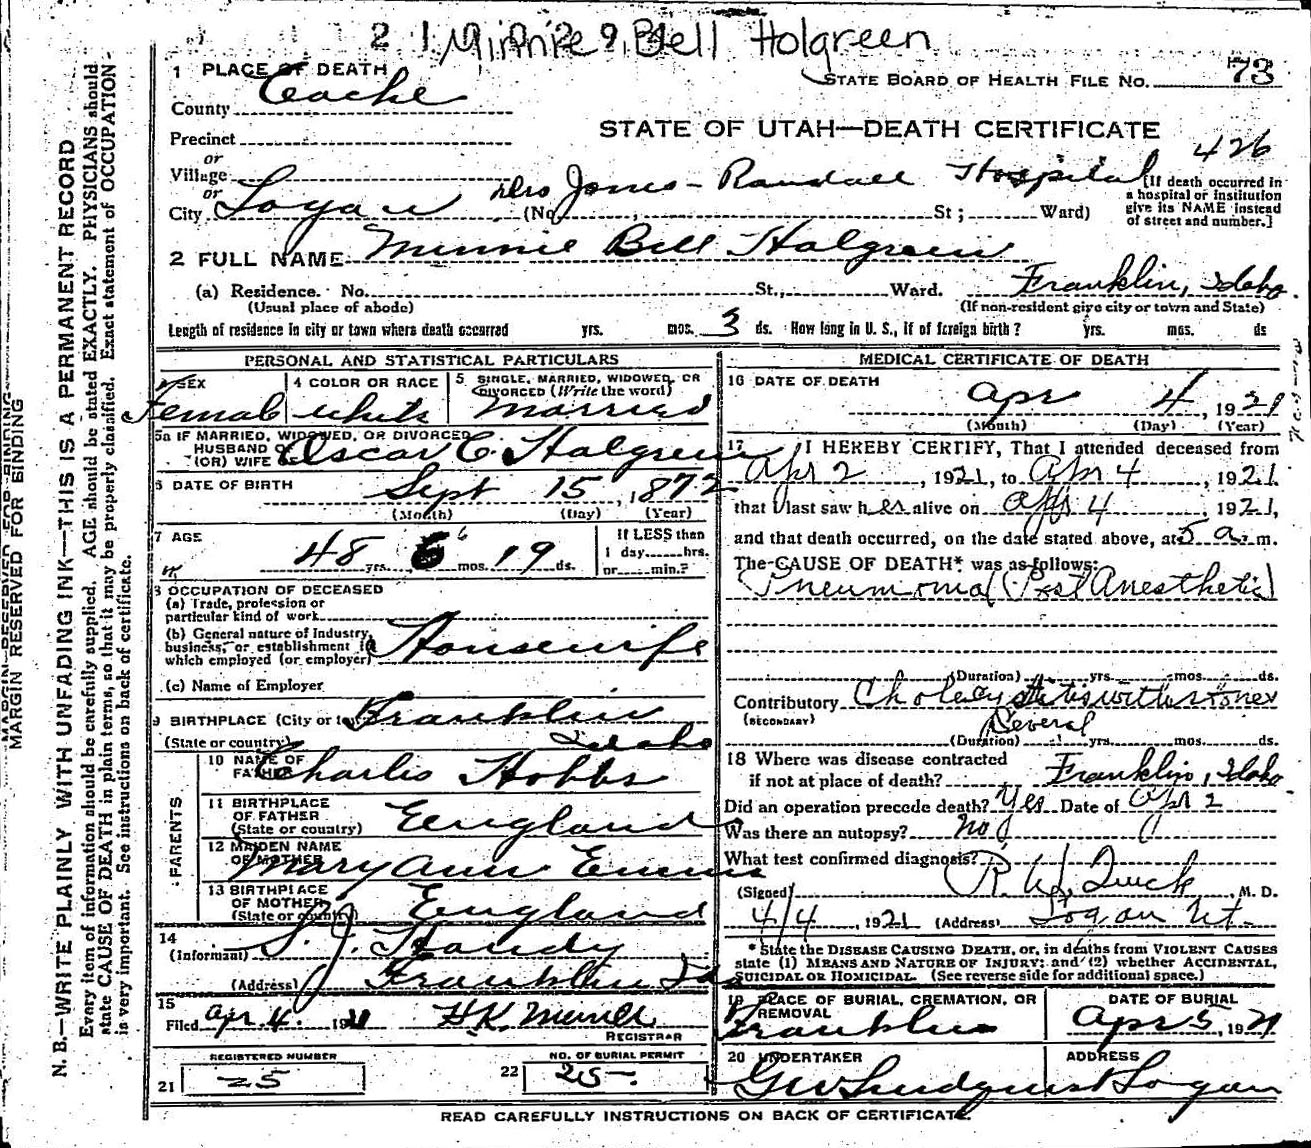 2 1 Minnie Bell Holgreen
1 PLACE OF DEATH
STATE BOARD OF HEALTH FILE NO. 73
County Cache
STATE OF UTAH—DEATH CERTIFICATE
Precinct
426
or
Village
or
City Logan (No. Jones-Randall Hospital St; Ward)
[If death occurred in a hospital or institution give its NAME instead of street and number.]
2 FULL NAME Minnie Bell Halgreen
(a) Residence. No. St., Ward. Franklin, Idaho
(Usual place of abode) (If non-resident give city or town and State)
Length of residence in city or town where death occurred yrs. mos. 3 ds. How long in U. S., if of foreign birth? yrs. mos. ds
PERSONAL AND STATISTICAL PARTICULARS
3 SEX Female
4 COLOR OR RACE white
5 SINGLE, MARRIED, WIDOWED, OR DIVORCED (Write the word) Married
5a IF MARRIED, WIDOWED, OR DIVORCED
HUSBAND OF
(OR) WIFE OF Oscar C. Halgreen
6 DATE OF BIRTH Sept 15, 1872
(Month) (Day) (Year)
7 AGE 48 yrs. 6 mos. 19 ds.
If LESS than
1 day......hrs.
or......min.?
8 OCCUPATION OF DECEASED
(a) Trade, profession or
particular kind of work
(b) General nature of Industry,
business, or establishment in
which employed (or employer) Housewife
(c) Name of Employer
9 BIRTHPLACE (City or town) Franklin
(State or country) Idaho
PARENTS
10 NAME OF FATHER Charlis Hobbs
11 BIRTHPLACE
OF FATHER
(State or country) England
12 MAIDEN NAME
OF MOTHER Mary Ann Emms
13 BIRTHPLACE
OF MOTHER
(State or country) England
14
(Informant) S. J. Handy
(Address) Franklin Ida
15
Filed Apr. 4. 1921 H.K. Merrill
REGISTRAR
REGISTERED NUMBER
21 25
NO. OF BURIAL PERMIT
22 25-
MEDICAL CERTIFICATE OF DEATH
16 DATE OF DEATH
Apr 4, 1921
(Month) (Day) (Year)
17 I HEREBY CERTIFY, That I attended deceased from
Apr 2, 1921, to Apr 4, 1921.
that I last saw her alive on Apr 4, 1921,
and that death occurred, on the date stated above, at 5 a. m.
The CAUSE OF DEATH* was as follows:
Pneumonia (Post Anesthetic)
(Duration) yrs. mos. ds.
Contributory Cholecystitis with stones
(SECONDARY) Several
(Duration) yrs. mos. ds.
18 Where was disease contracted
if not at place of death? Franklin, Idaho
Did an operation precede death? Yes Date of Apr 2
Was there an autopsy? No
What test confirmed diagnosis?
(Signed) , M. D.
4/4, 1921 (Address) Logan Ut-
* State the DISEASE CAUSING DEATH, or, in deaths from VIOLENT CAUSES
state (1) MEANS AND NATURE OF INJURY; and (2) whether ACCIDENTAL,
SUICIDAL OR HOMICIDAL. (See reverse side for additional space.)
19 PLACE OF BURIAL, CREMATION, OR
REMOVAL Franklin
DATE OF BURIAL
Apr 5, 1921
20 UNDERTAKER
G W Lindquist
ADDRESS
Logan
READ CAREFULLY INSTRUCTIONS ON BACK OF CERTIFICATE.
MARGIN RESERVED FOR BINDING
MARGIN RESERVED FOR BINDING
N. B.—WRITE PLAINLY WITH UNFADING INK—THIS IS A PERMANENT RECORD
Every item of information should be carefully supplied. AGE should be stated EXACTLY. PHYSICIANS should
state CAUSE OF DEATH in plain terms, so that it may be properly classified. Exact statement of OCCUPATION
is very important. See instructions on back of certificate.